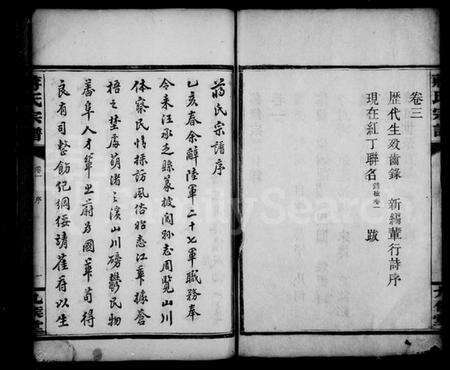 卷三
歷代生歿齒錄 新編輩行詩序
現在紅丁聯名 跋
蔣氏宗譜序
乙亥春余辭陸軍二十七軍職務奉
令來江承乏縣篆披閱縣志周覽山川
體察民情採訪風俗昭悉江華據蒼
梧之埜虖萌渚之濱山川磅鬱民物
蕃阜人才輩出蔚為國華苟得
良有司整飭紀綱綏靖萑苻以生
FamilySearch